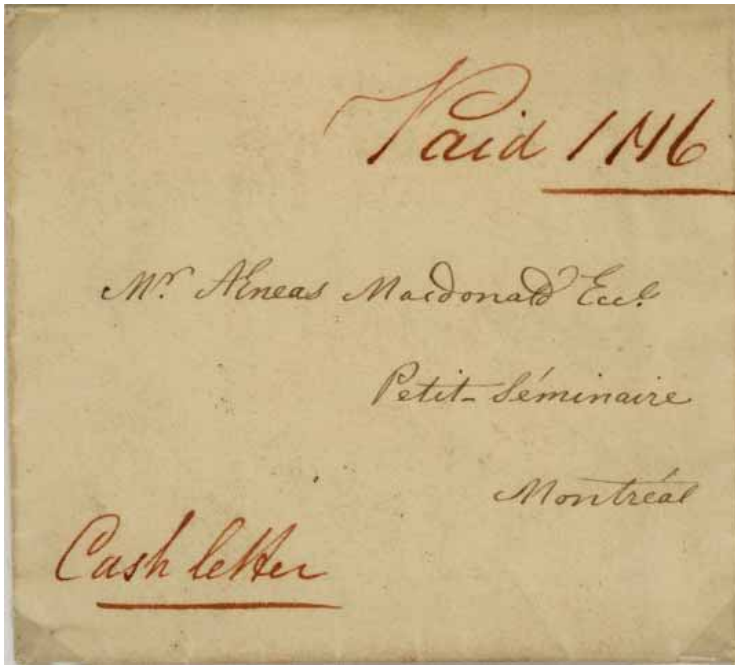 Paid 1N6
Mr. Æneas Macdonald Eccl.
Petit-Séminaire
Montréal
Cash letter